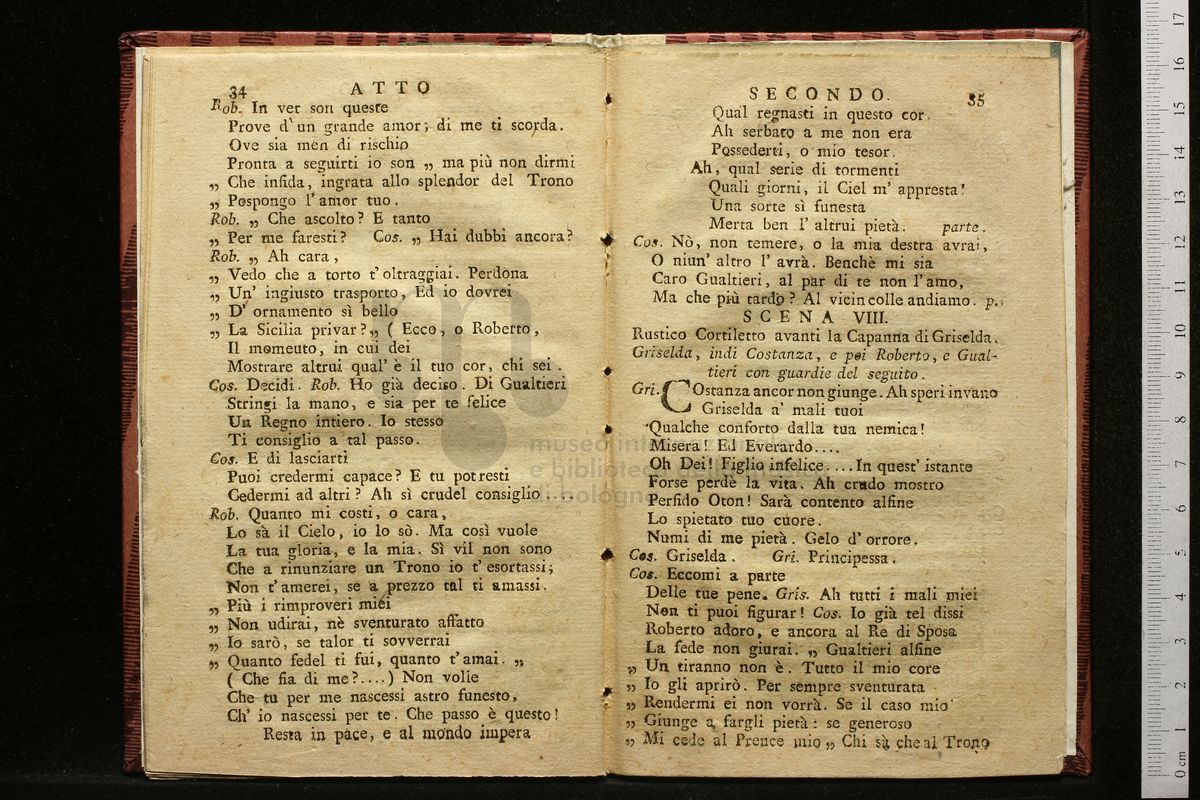 34 ATTO
Rob. In ver son queste
Prove d'un grande amor; di me ti scorda.
Ove sia men di rischio
Pronta a seguirti io son „ ma più non dirmi
„ Che infida, ingrata allo splendor del Trono
„ Pospongo l'amor tuo.
Rob. „ Che ascolto? E tanto
„ Per me faresti? Cos. „ Hai dubbi ancora?
Rob. „ Ah cara,
„ Vedo che a torto t'oltraggiai. Perdona
„ Un' ingiusto trasporto, Ed io dovrei
„ D' ornamento sì bello
„ La Sicilia privar?„ ( Ecco, o Roberto,
Il momeuto, in cui dei
Mostrare altrui qual' è il tuo cor, chi sei.
Cos. Decidi. Rob. Ho già deciso. Di Gualtieri
Stringi la mano, e sia per te felice
Un Regno intiero. Io stesso
Ti consiglio a tal passo.
Cos. E di lasciarti
Puoi credermi capace? E tu potresti
Cedermi ad altri? Ah sì crudel consiglio....
Rob. Quanto mi costi, o cara,
Lo sà il Cielo, io lo sò. Ma così vuole
La tua gloria, e la mia. Sì vil non sono
Che a rinunziare un Trono io t'esortassi;
Non t'amerei, se a prezzo tal ti amassi.
„ Più i rimproveri miei
„ Non udirai, nè sventurato affatto
„ Io sarò, se talor ti sovverrai
„ Quanto fedel ti fui, quanto t'amai. „
( Che fia di me?....) Non volle
Che tu per me nascessi astro funesto,
Ch' io nascessi per te. Che passo è questo!
Resta in pace, e al mondo impera
SECONDO. 35
Qual regnasti in questo cor.
Ah serbato a me non era
Possederti, o mio tesor.
Ah, qual serie di tormenti
Quali giorni, il Ciel m' appresta!
Una sorte sì funesta
Merta ben l' altrui pietà. parte.
Cos. Nò, non temere, o la mia destra avrai,
O niun' altro l' avrà. Benchè mi sia
Caro Gualtieri, al par di te non l'amo,
Ma che più tardo? Al vicin colle andiamo. p.
SCENA VIII.
Rustico Cortiletto avanti la Capanna di Griselda.
Griselda, indi Costanza, e poi Roberto, e Gual-
tieri con guardie del seguito.
Gri. COstanza ancor non giunge. Ah speri invano
Griselda a' mali tuoi
Qualche conforto dalla tua nemica!
Misera! Ed Everardo....
Oh Dei! Figlio infelice....In quest' istante
Forse perdè la vita. Ah crudo mostro
Perfido Oton! Sarà contento alfine
Lo spietato tuo cuore.
Numi di me pietà. Gelo d' orrore.
Cos. Griselda. Gri. Principessa.
Cos. Eccomi a parte
Delle tue pene. Gris. Ah tutti i mali miei
Non ti puoi figurar! Cos. Io già tel dissi
Roberto adoro, e ancora al Re di Sposa
La fede non giurai. „ Gualtieri alfine
„ Un tiranno non è. Tutto il mio core
„ Io gli aprirò. Per sempre sventurata
„ Rendermi ei non vorrà. Se il caso mio
„ Giunge a fargli pietà: se generoso
„ Mi cede al Prence mio „ Chi sà che al Trono